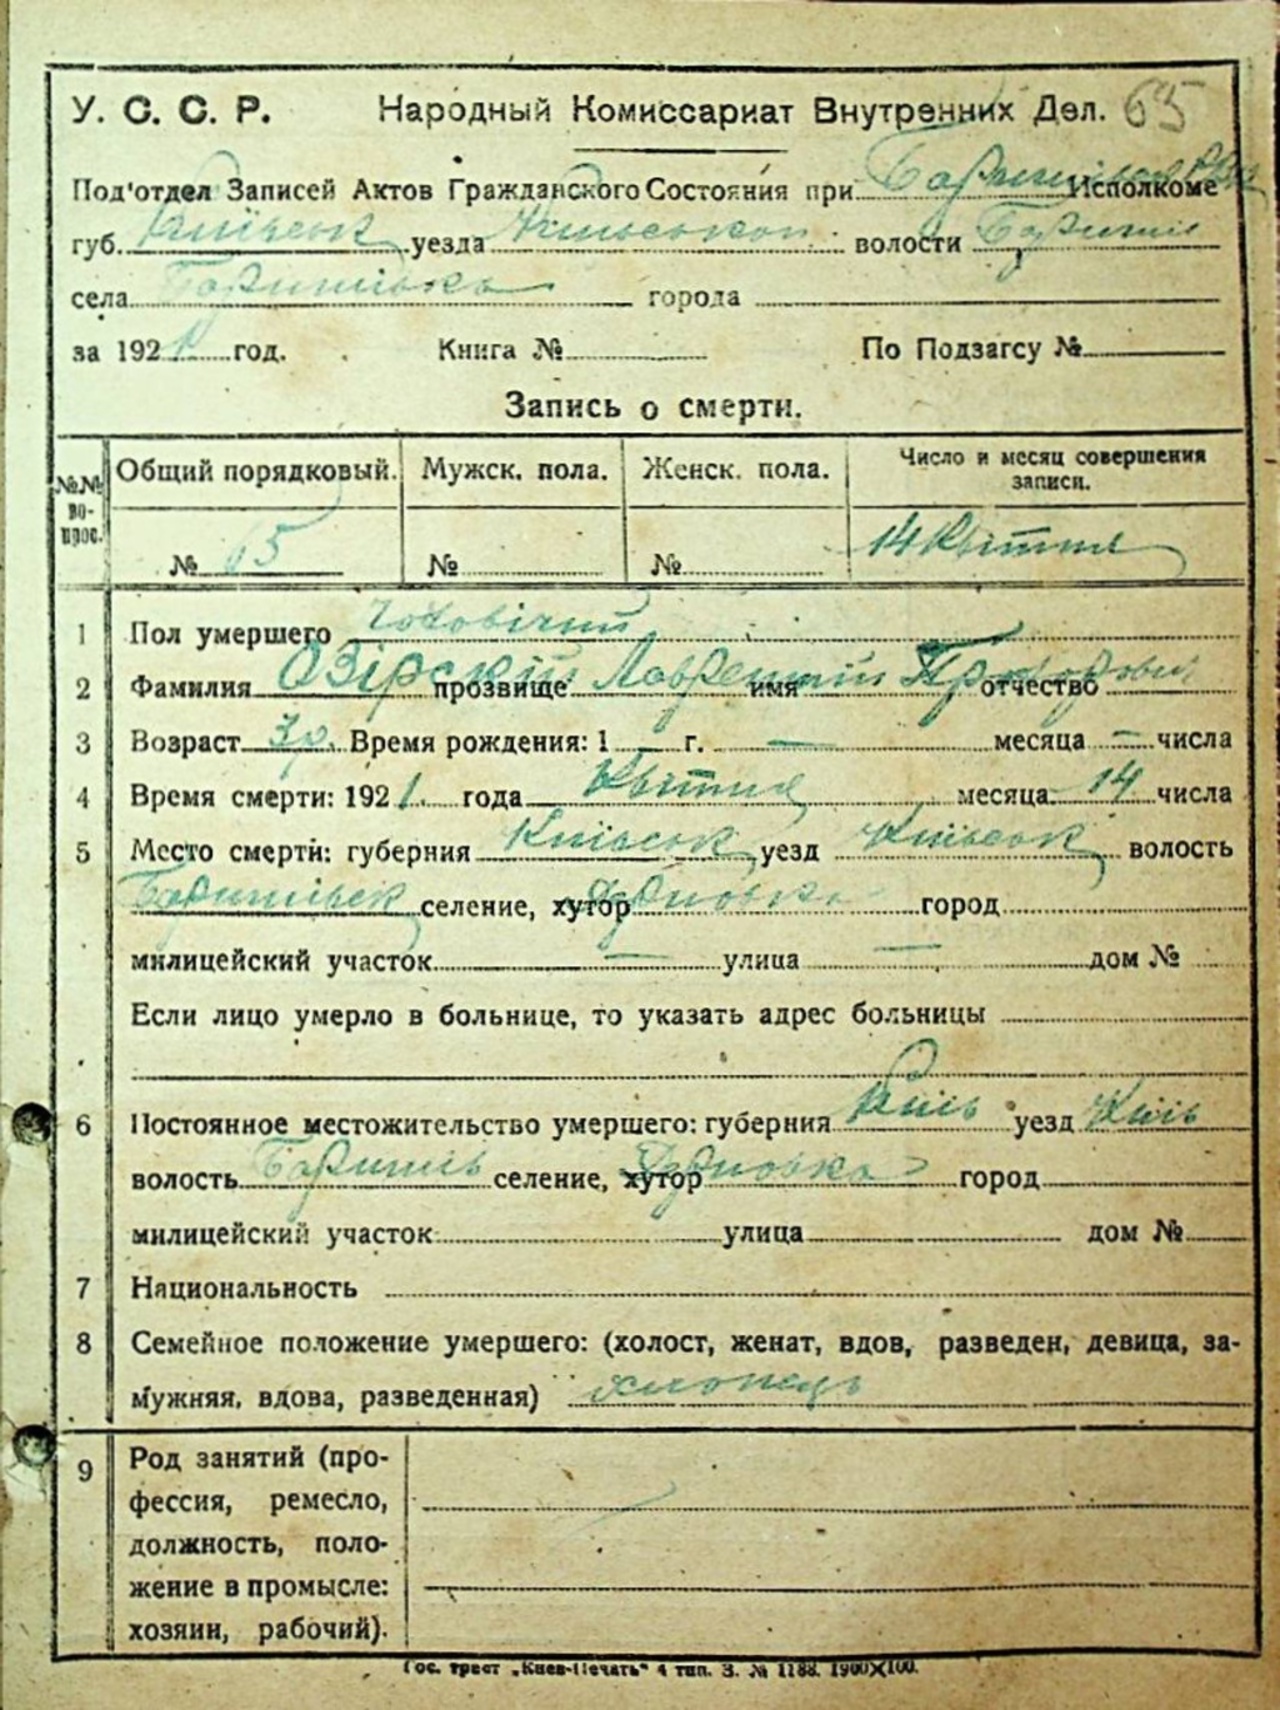 У. С. С. Р. Народный Комиссариат Внутренних Дел. 65
Под'отдел Записей Актов Гражданского Состояния при Исполкоме
губ. Київськ уезда волости Баришів
села Баришівка города
за 1921 год. Книга № По Подзагсу №
Запись о смерти.
№№ вопрос. Общий порядковый. Мужск. пола. Женск. пола. Число и месяц совершения записи.
№ 65 № № 14 Квітня
1 Пол умершего Чоловічий
2 Фамилия Озірскій прозвище Лаврентій имя отчество
3 Возраст 3 р. Время рождения: 1 — г. — месяца — числа
4 Время смерти: 1921. года Квітня месяца 14 числа
5 Место смерти: губерния Київськ уезд Київськ волость
Баришівськ селение, хутор город
милицейский участок — улица — дом №
Если лицо умерло в больнице, то указать адрес больницы
6 Постоянное местожительство умершего: губерния Київ уезд Київ
волость Баришів селение, хутор город
милицейский участок улица дом №
7 Национальность
8 Семейное положение умершего: (холост, женат, вдов, разведен, девица, за-
мужняя, вдова, разведенная) хлопець
9 Род занятий (про-
фессия, ремесло,
должность, поло-
жение в промысле:
хозяин, рабочий).
Гос. трест „Киев-Печать" 4 тип. З. № 1188. 1900X100.